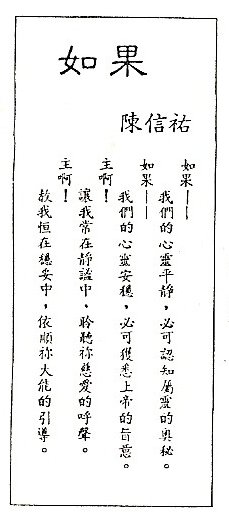 如果
陳信祐
如果——
我們的心靈平靜，必可認知屬靈的奧秘。
如果——
我們的心靈安穩，必可獲悉上帝的旨意。
主啊！
讓我常在靜謐中，聆聽祢慈愛的呼聲。
主啊！
教我恒在穩妥中，依順祢大能的引導。